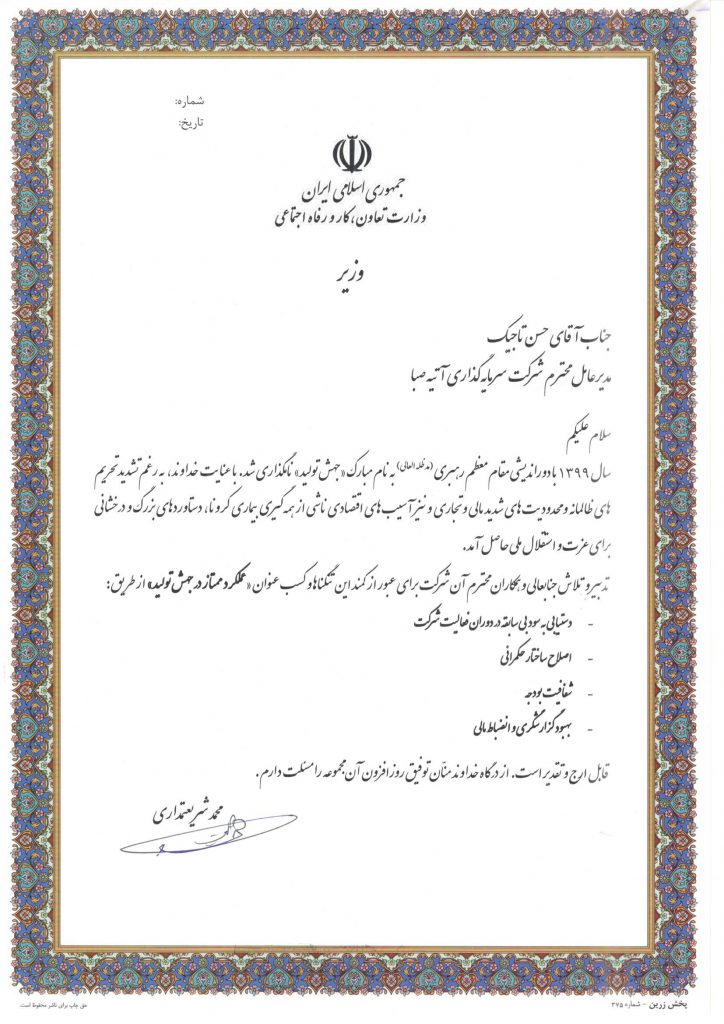 شماره:
تاریخ:
جمهوری اسلامی ایران
وزارت تعاون، کار و رفاه اجتماعی
وزیر
جناب آقای حسن تاجیک
مدیرعامل محترم شرکت سرمایه گذاری آتیه صبا
سلام علیکم
سال ۱۳۹۹ با دوراندیشی مقام معظم رهبری (مدظله العالی) به نام مبارک «جهش تولید» نامگذاری شد. با عنایت خداوند، به رغم تشدید تحریم
های ظالمانه و محدودیت های شدید مالی و تجاری و نیز آسیب های اقتصادی ناشی از همه گیری بیماری کرونا، دستاوردهای بزرگ و درخشانی
برای عزت و استقلال ملی حاصل آمد.
تدبیر و تلاش جنابعالی و همکاران محترم آن شرکت برای عبور از کمند این تنگناها و کسب عنوان «عملکرد ممتاز در جهش تولید» از طریق:
- دستیابی به سود بی سابقه در دوران فعالیت شرکت
- اصلاح ساختار حکمرانی
- شفافیت بودجه
- بهبود گزارشگری و انضباط مالی
قابل ارج و تقدیر است. از درگاه خداوند منّان توفیق روزافزون آن مجموعه را مسئلت دارم.
محمد شریعتمداری
پخش زرین - شماره ۳۷۵
حق چاپ برای ناشر محفوظ است.